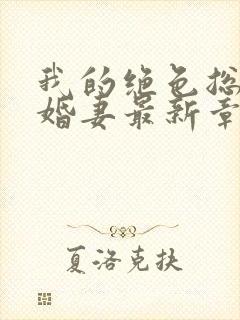 我的绝色总
婚妻最新章
夏洛克扶